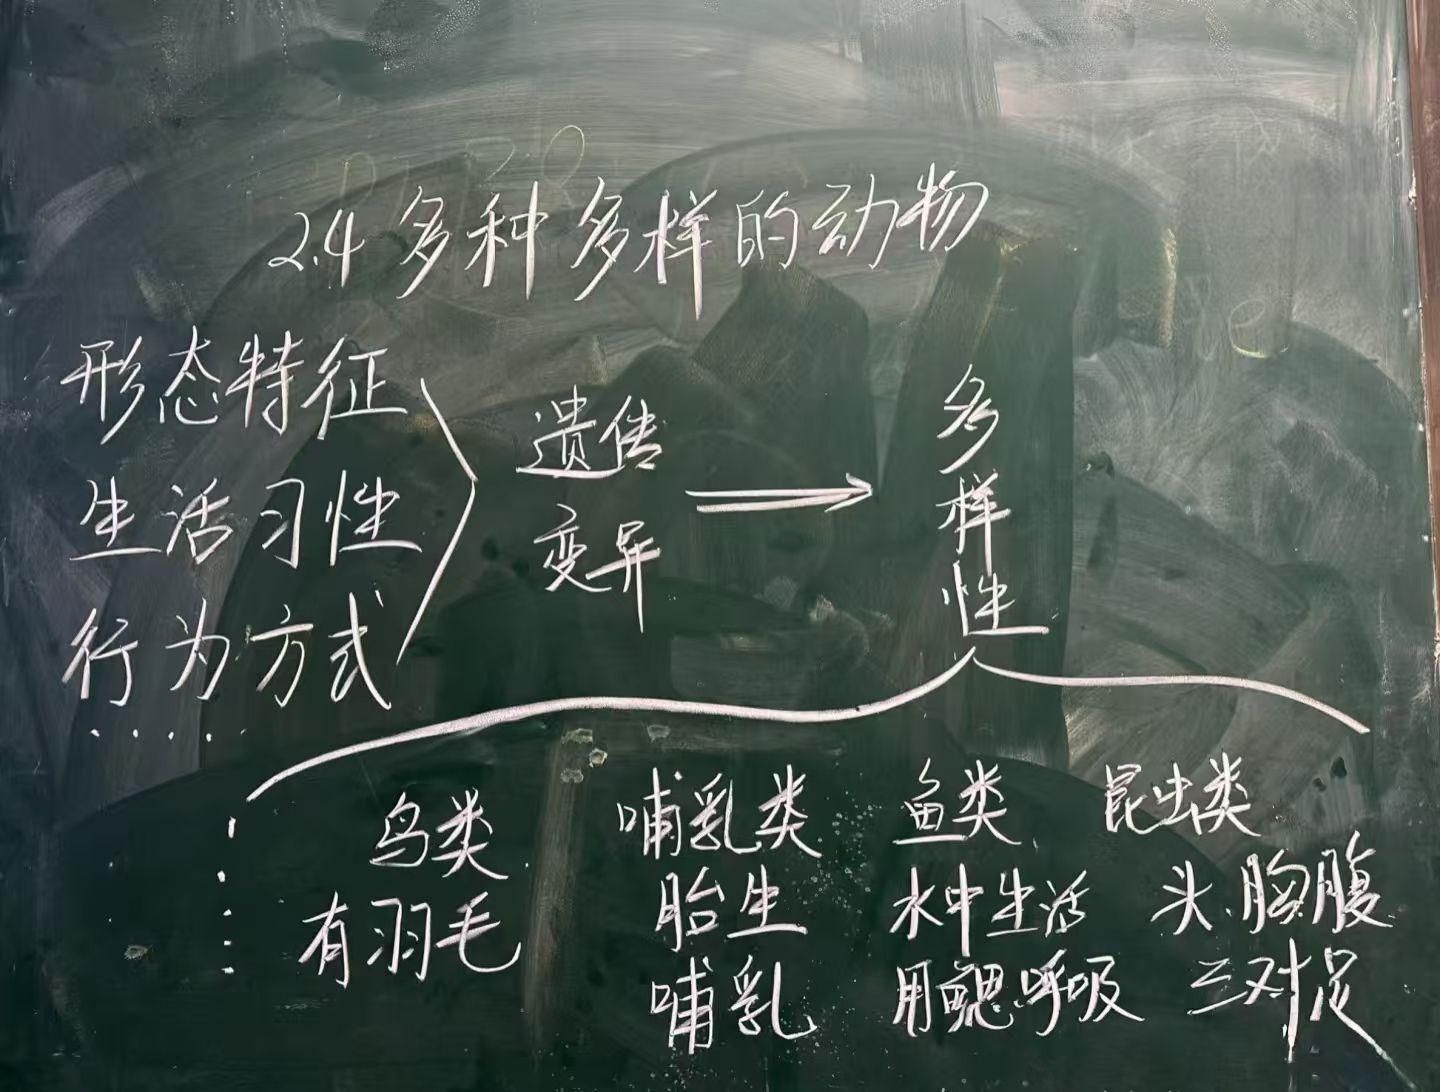 2.4 多种多样的动物
形态特征
生活习性
行为方式
......
遗传
变异
多样性
鸟类
有羽毛
哺乳类
胎生
哺乳
鱼类
水中生活
用鳃呼吸
昆虫类
头.胸腹
三对足